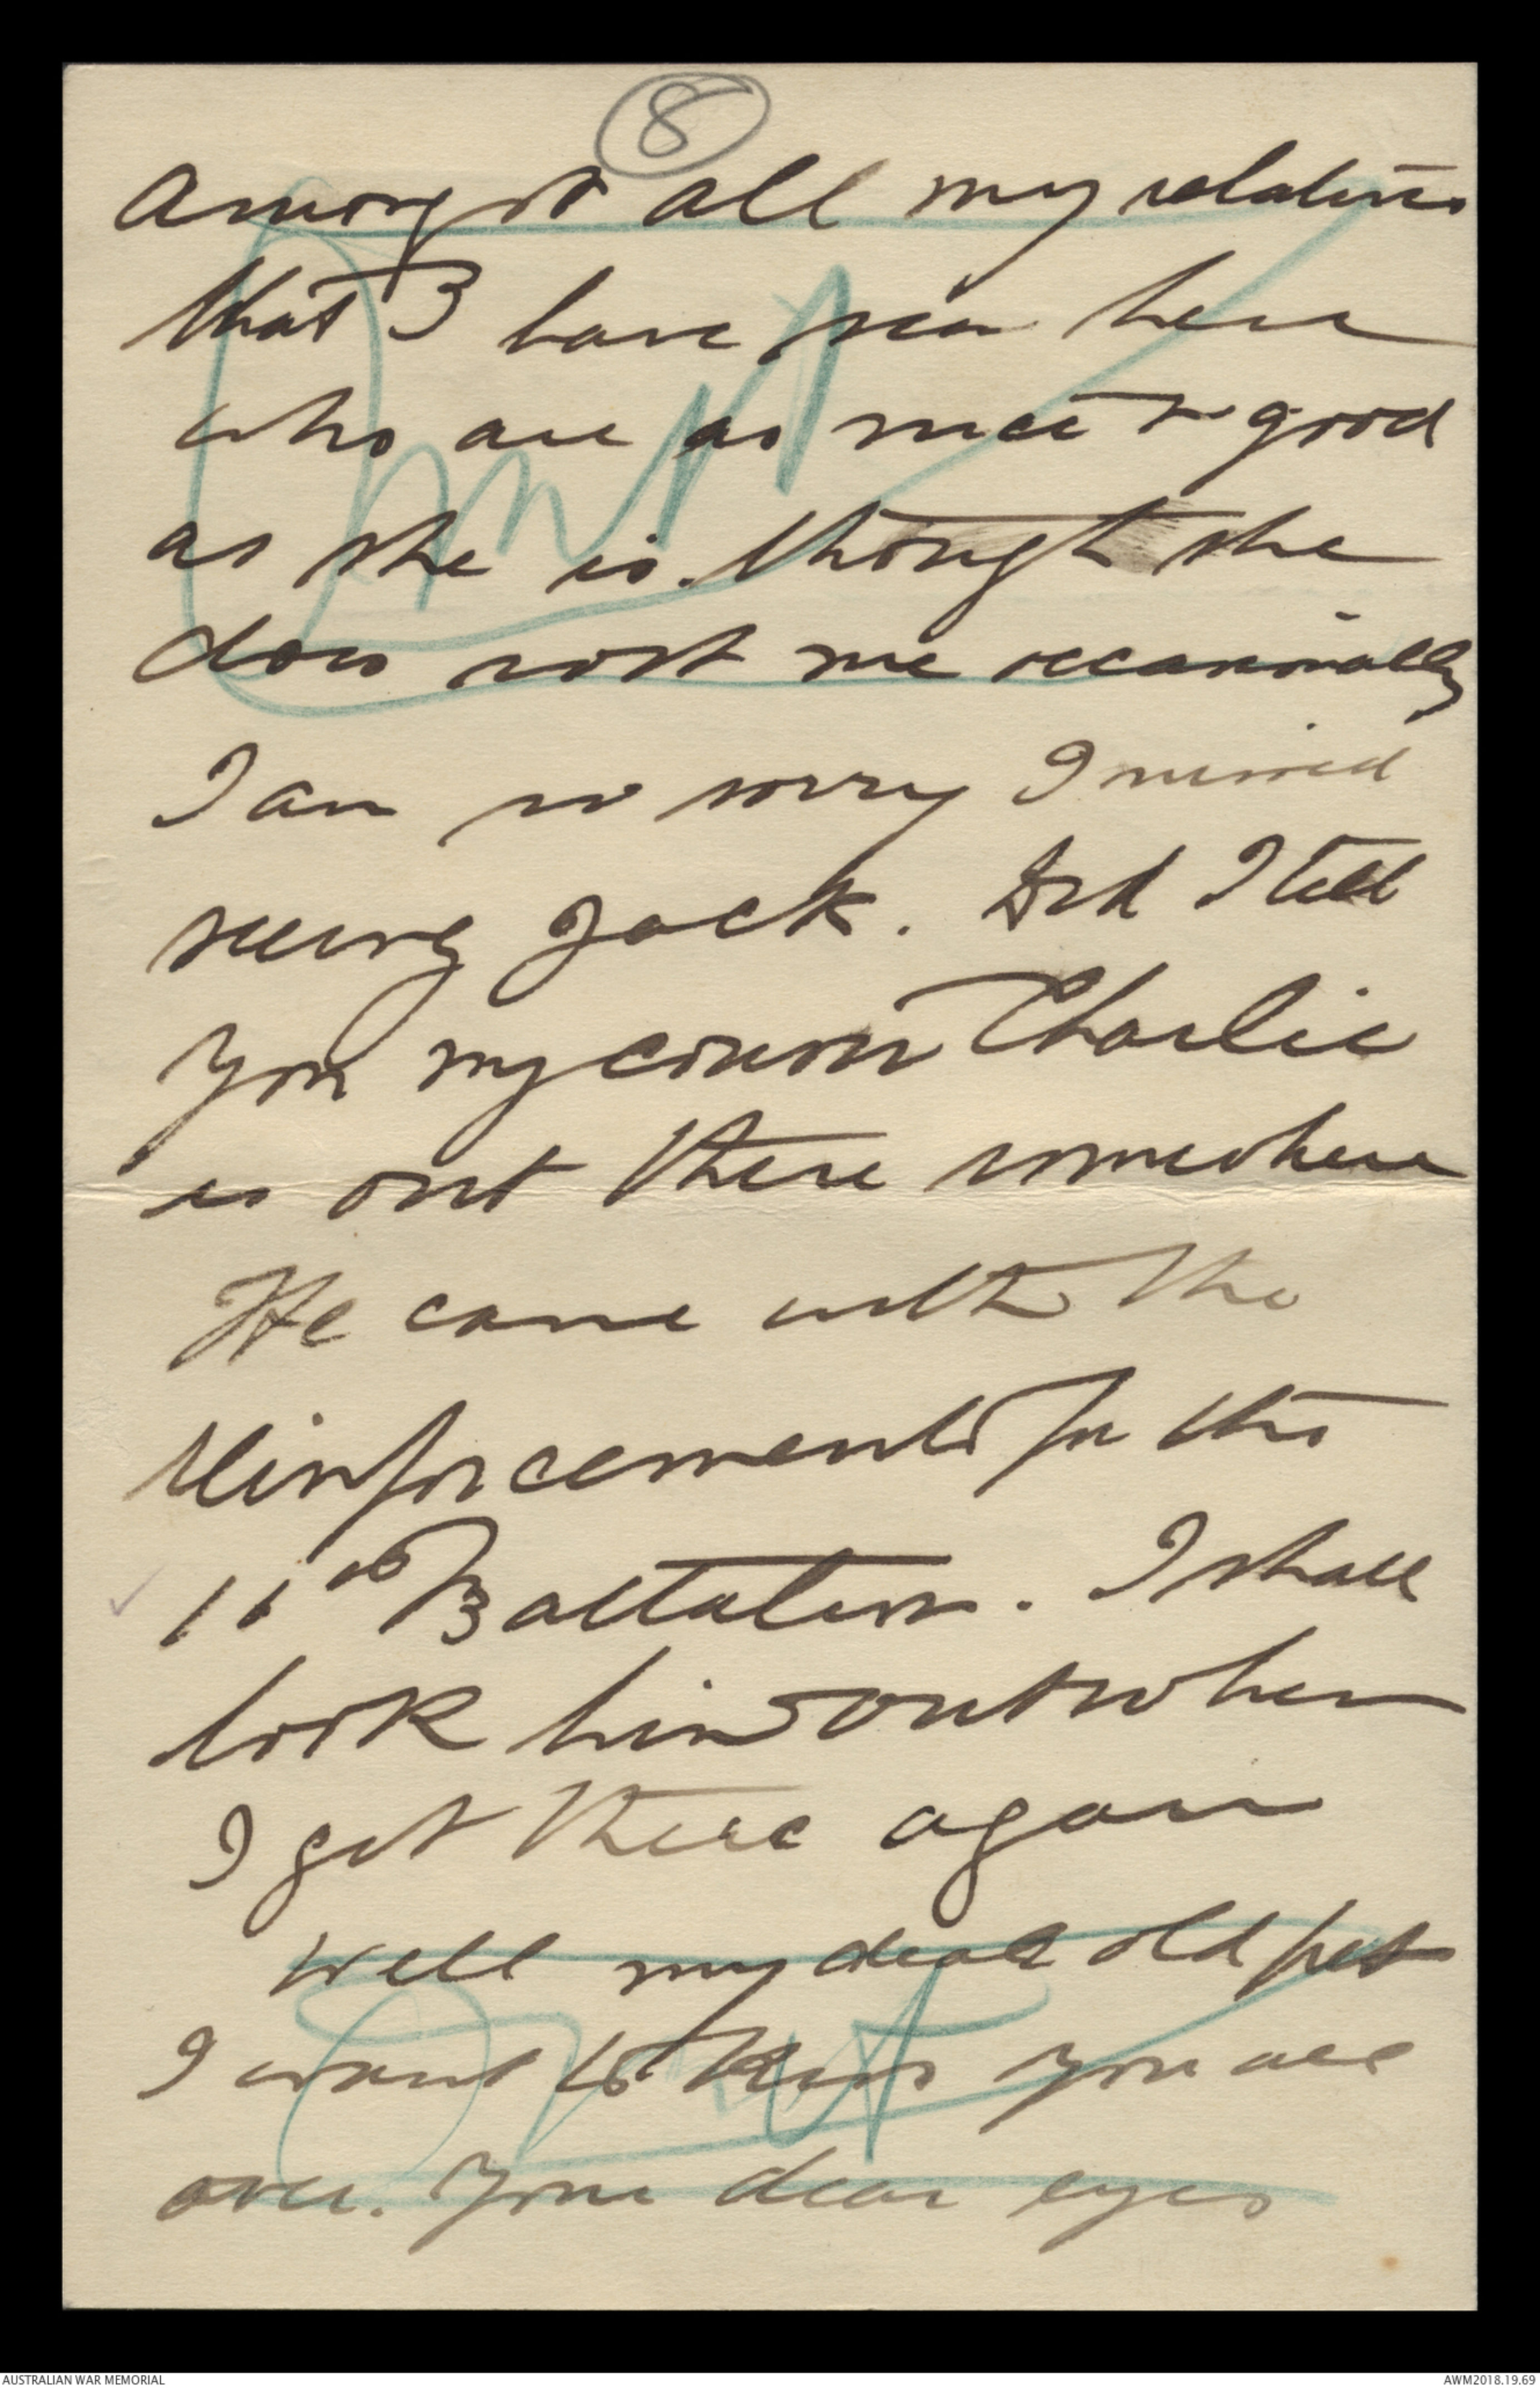 8
amongst all my relatives
that I have seen here
who are as nice & good
as she is. though she
does rost me occasionally
I am so sorry I missed
seeing Jack. Did I tell
you my cousin Charlie
is out there somewhere
He came with the
reinforcements for the
11th Battalion. I shall
look him out when
I get there again
Well my dear old pet
I want to kiss you all
over. Your dear eyes
Omit
Omit
AUSTRALIAN WAR MEMORIAL
AWM2018.19.69